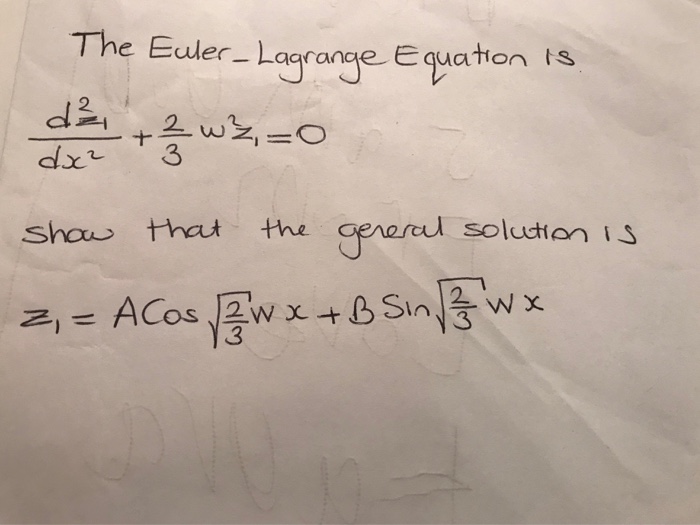 The Euler-Lagrange Equation is
d²z₁/dx² + 2/3 w²z₁ = 0
show that the general solution is
z₁ = A Cos √(2/3) w x + B Sin √(2/3) w x